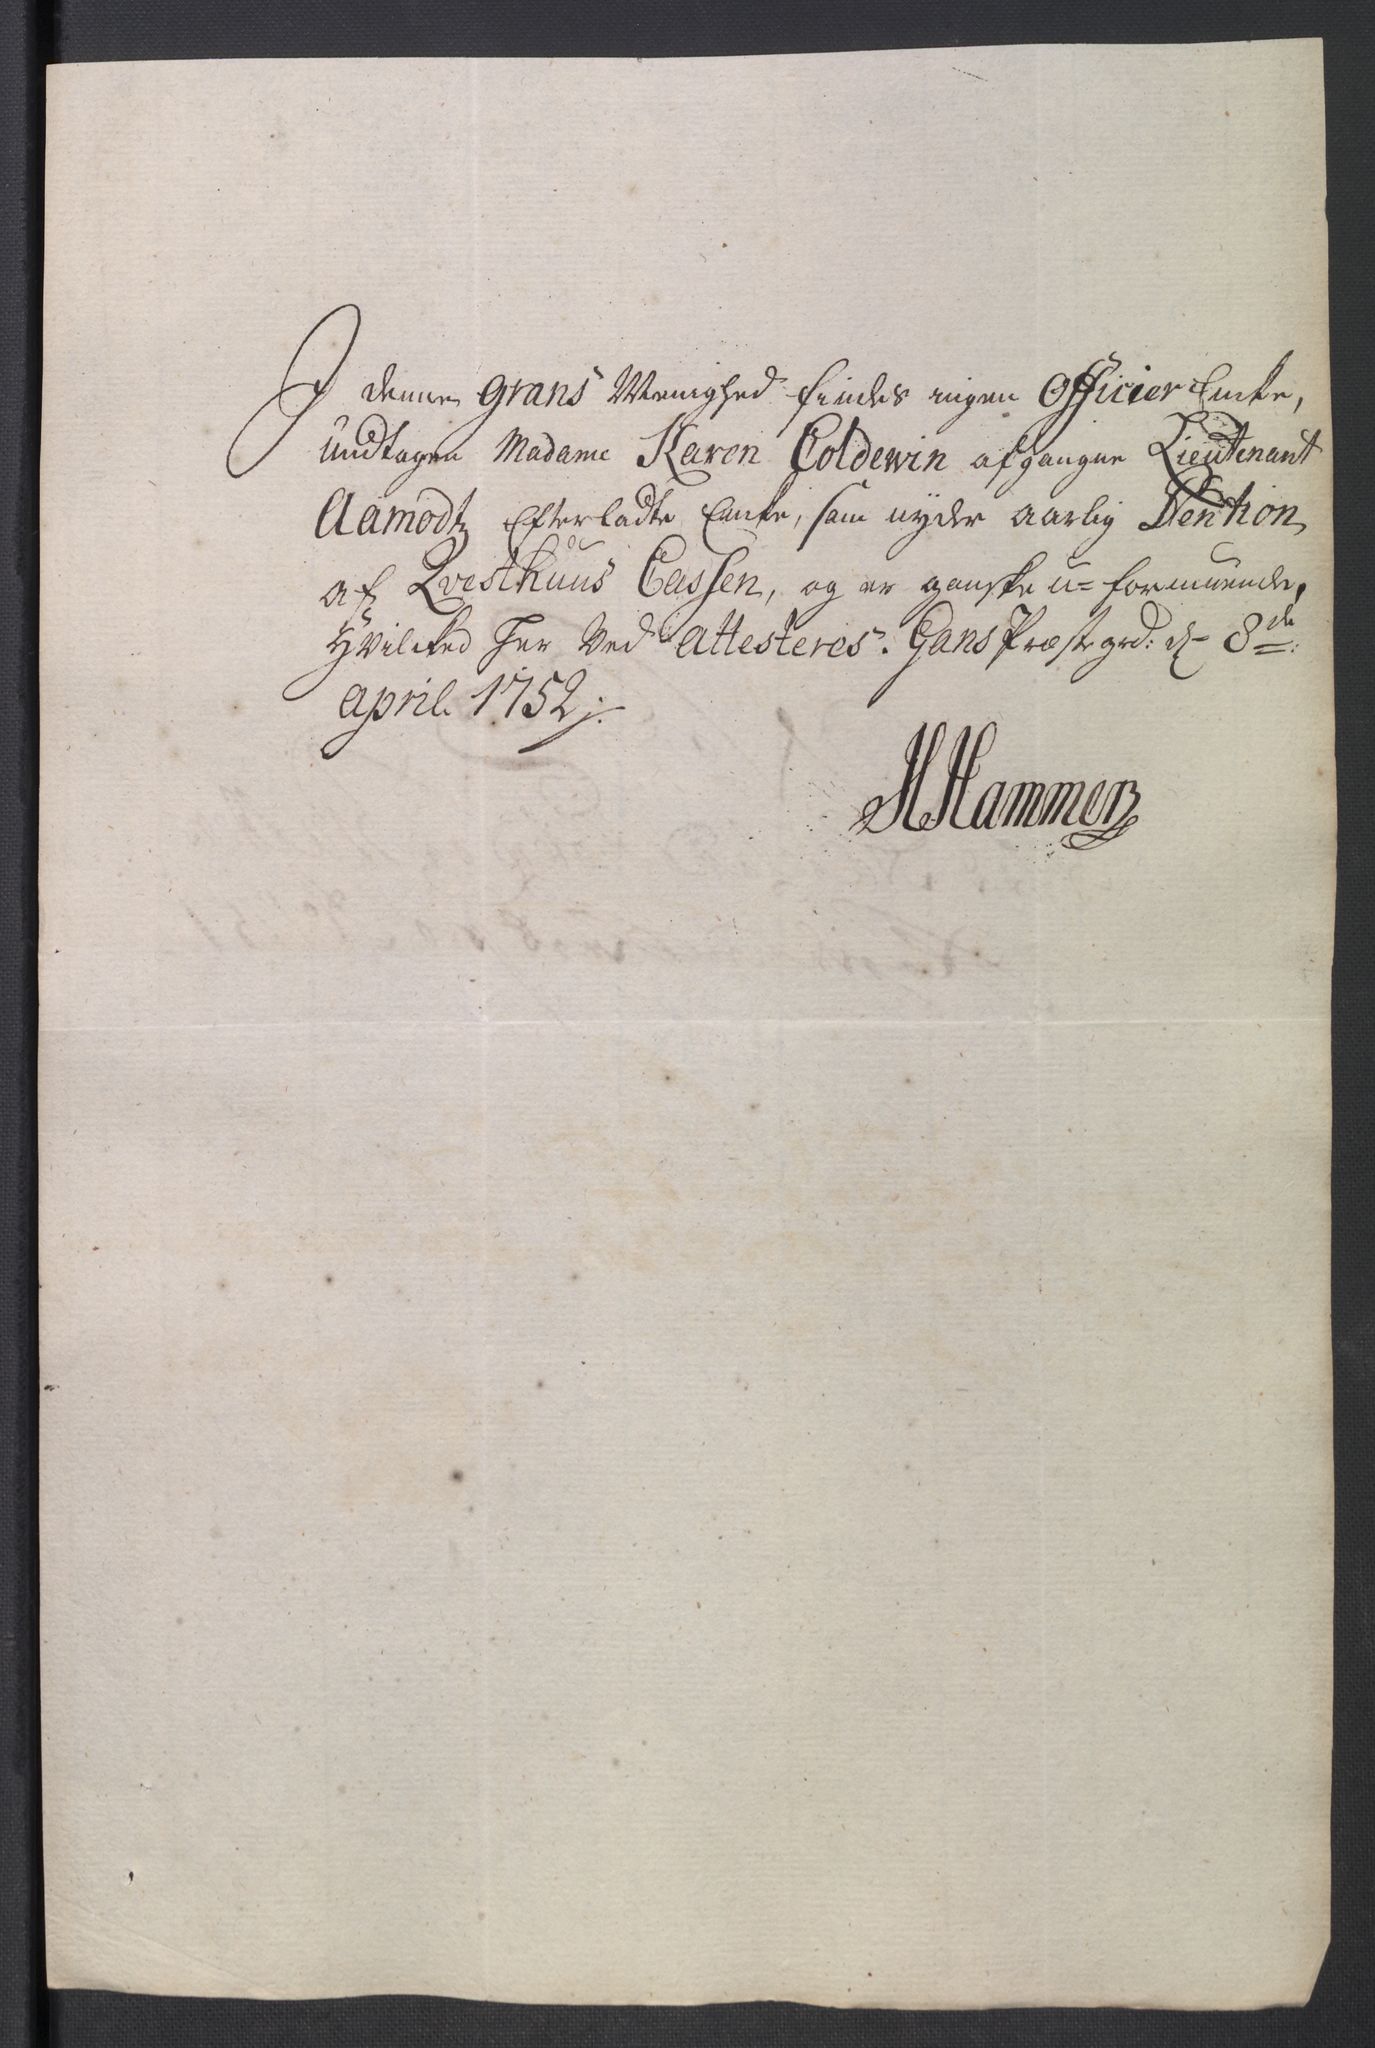 I denne Grans Menighed findes ingen Officier Encke,
undtagen Madame Karen Coldewin afgangne Lieutenant
Aamodtz Efterladte Encke, som nyder aarlig Pention
af Qvesthuus Cassen, og er ganske u=formuende,
Hvilcked Her Ved attesteres. Grans Præstegrd: d 8de:
April 1752
H Hammer